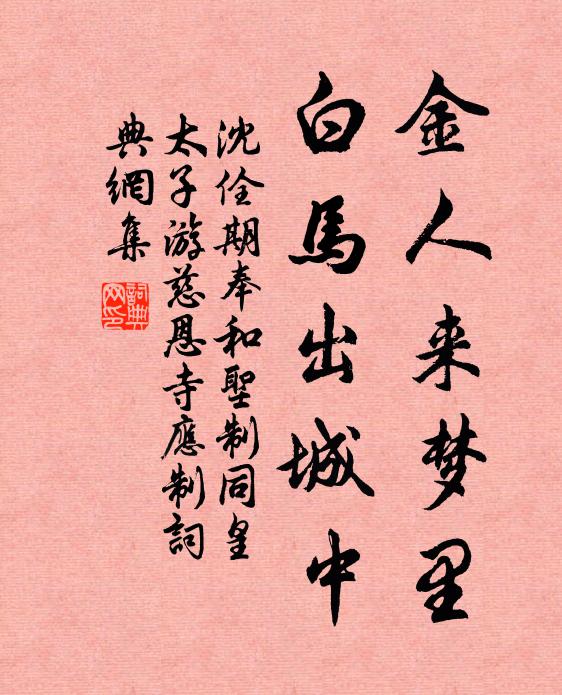 金人来梦里
白馬出城中
沈佺期奉和聖制同皇
太子游慈恩寺應制詞
典網集
詞典
网印